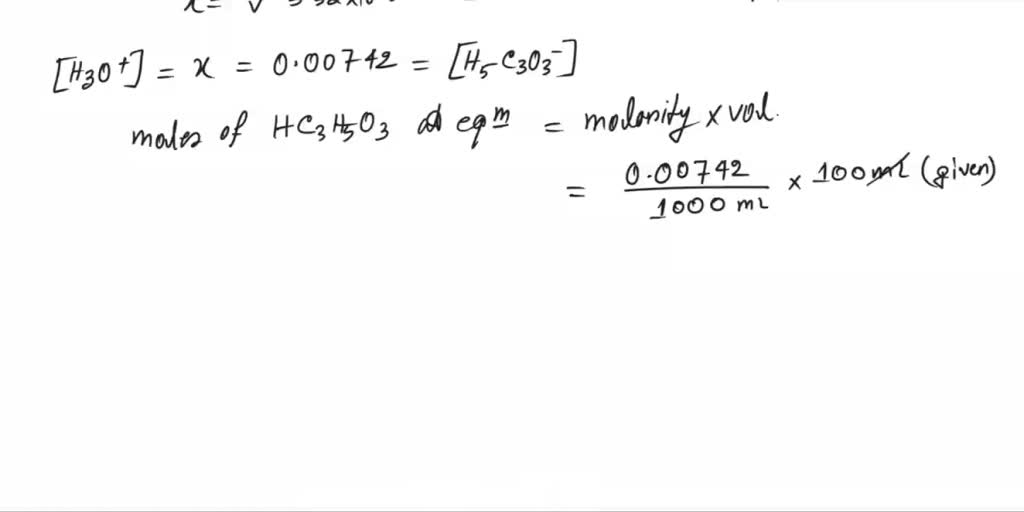 x = √
[H3O+] = x = 0.00742 = [H5C3O3-]
moles of HC3H5O3 at eqm = molarity x vol.
= 0.00742 / 1000 mL x 100 mL (given)